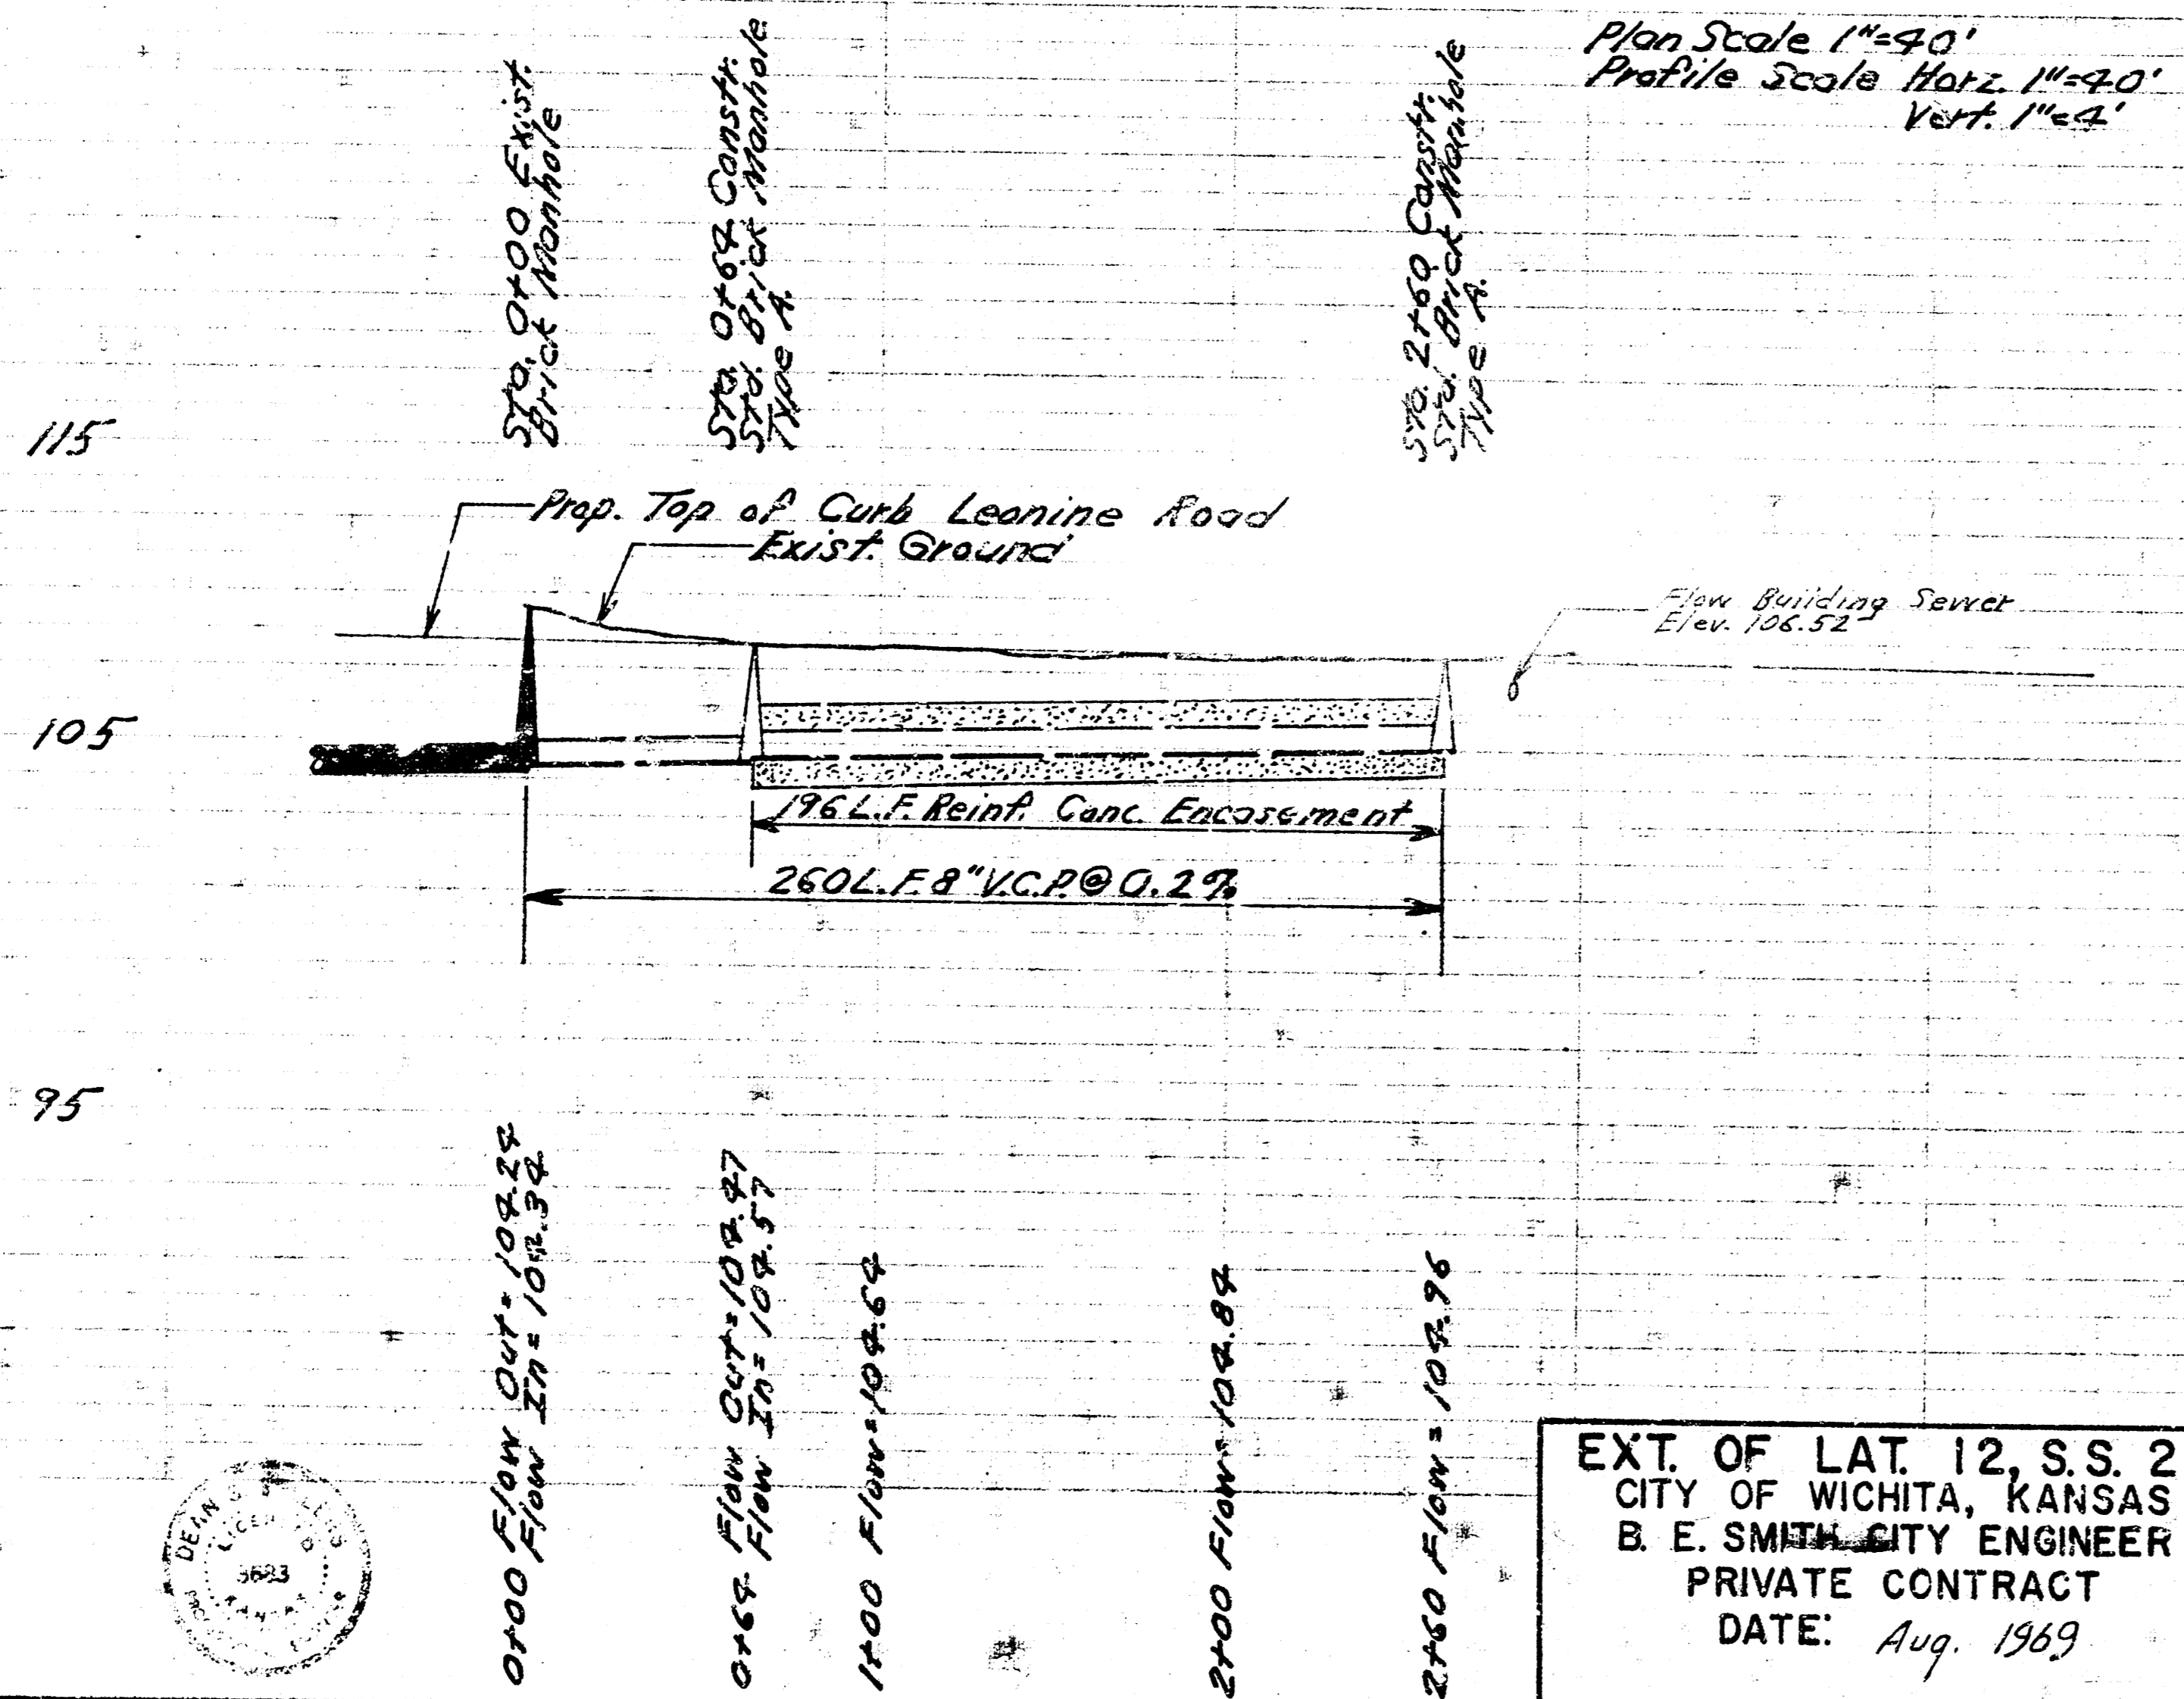 Plan Scale 1"=40'
Profile Scale Horz. 1"=40'
Vert. 1"=4'
Sta. 0+00 Exist.
Brick Manhole
Sta. 0+64 Constr.
Std. Brick Manhole
Type A.
Sta. 2+60 Constr.
Std. Brick Manhole
Type A.
115
Prop. Top of Curb Leonine Road
Exist. Ground
Flow Building Sewer
Elev. 106.52
105
196 L.F. Reinf. Conc. Encasement
260 L.F. 8" V.C.P. @ 0.2%
95
0+00 Flow Out = 104.24
Flow In = 104.34
0+64 Flow Out = 104.47
Flow In = 104.57
1+00 Flow = 104.64
2+00 Flow = 104.84
2+60 Flow = 104.96
DEAN
LICEN
3683
EXT. OF LAT. 12, S.S. 2
CITY OF WICHITA, KANSAS
B. E. SMITH CITY ENGINEER
PRIVATE CONTRACT
DATE: Aug. 1969